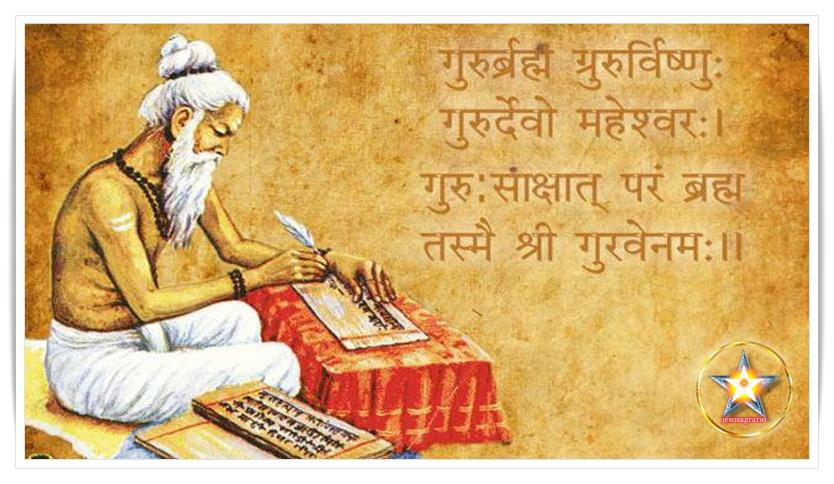 गुरुर्ब्रह्म ग्रुरुर्विष्णुः
गुरुर्देवो महेश्वरः।
गुरु:साक्षात् परं ब्रह्म
तस्मै श्री गुरवेनमः।।
jesusagrario